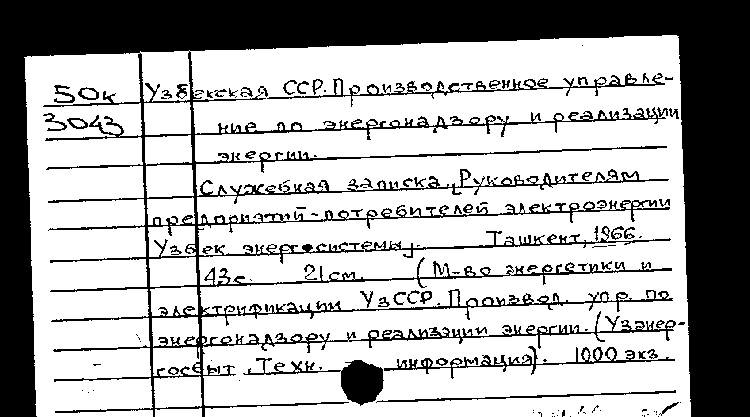 50к Узбекская ССР. Производственное управле-
3043 ние по энергонадзору и реализации
энергии.
Служебная записка [Руководителям
предприятий-потребителей электроэнергии
Узбек энергосистемы]. Ташкент, 1966.
43с. 21см. (М-во энергетики и
электрификации УзССР. Производ. упр. по
энергонадзору и реализации энергии. (Узэнер-
госбыт. Техн. информация). 1000 экз.